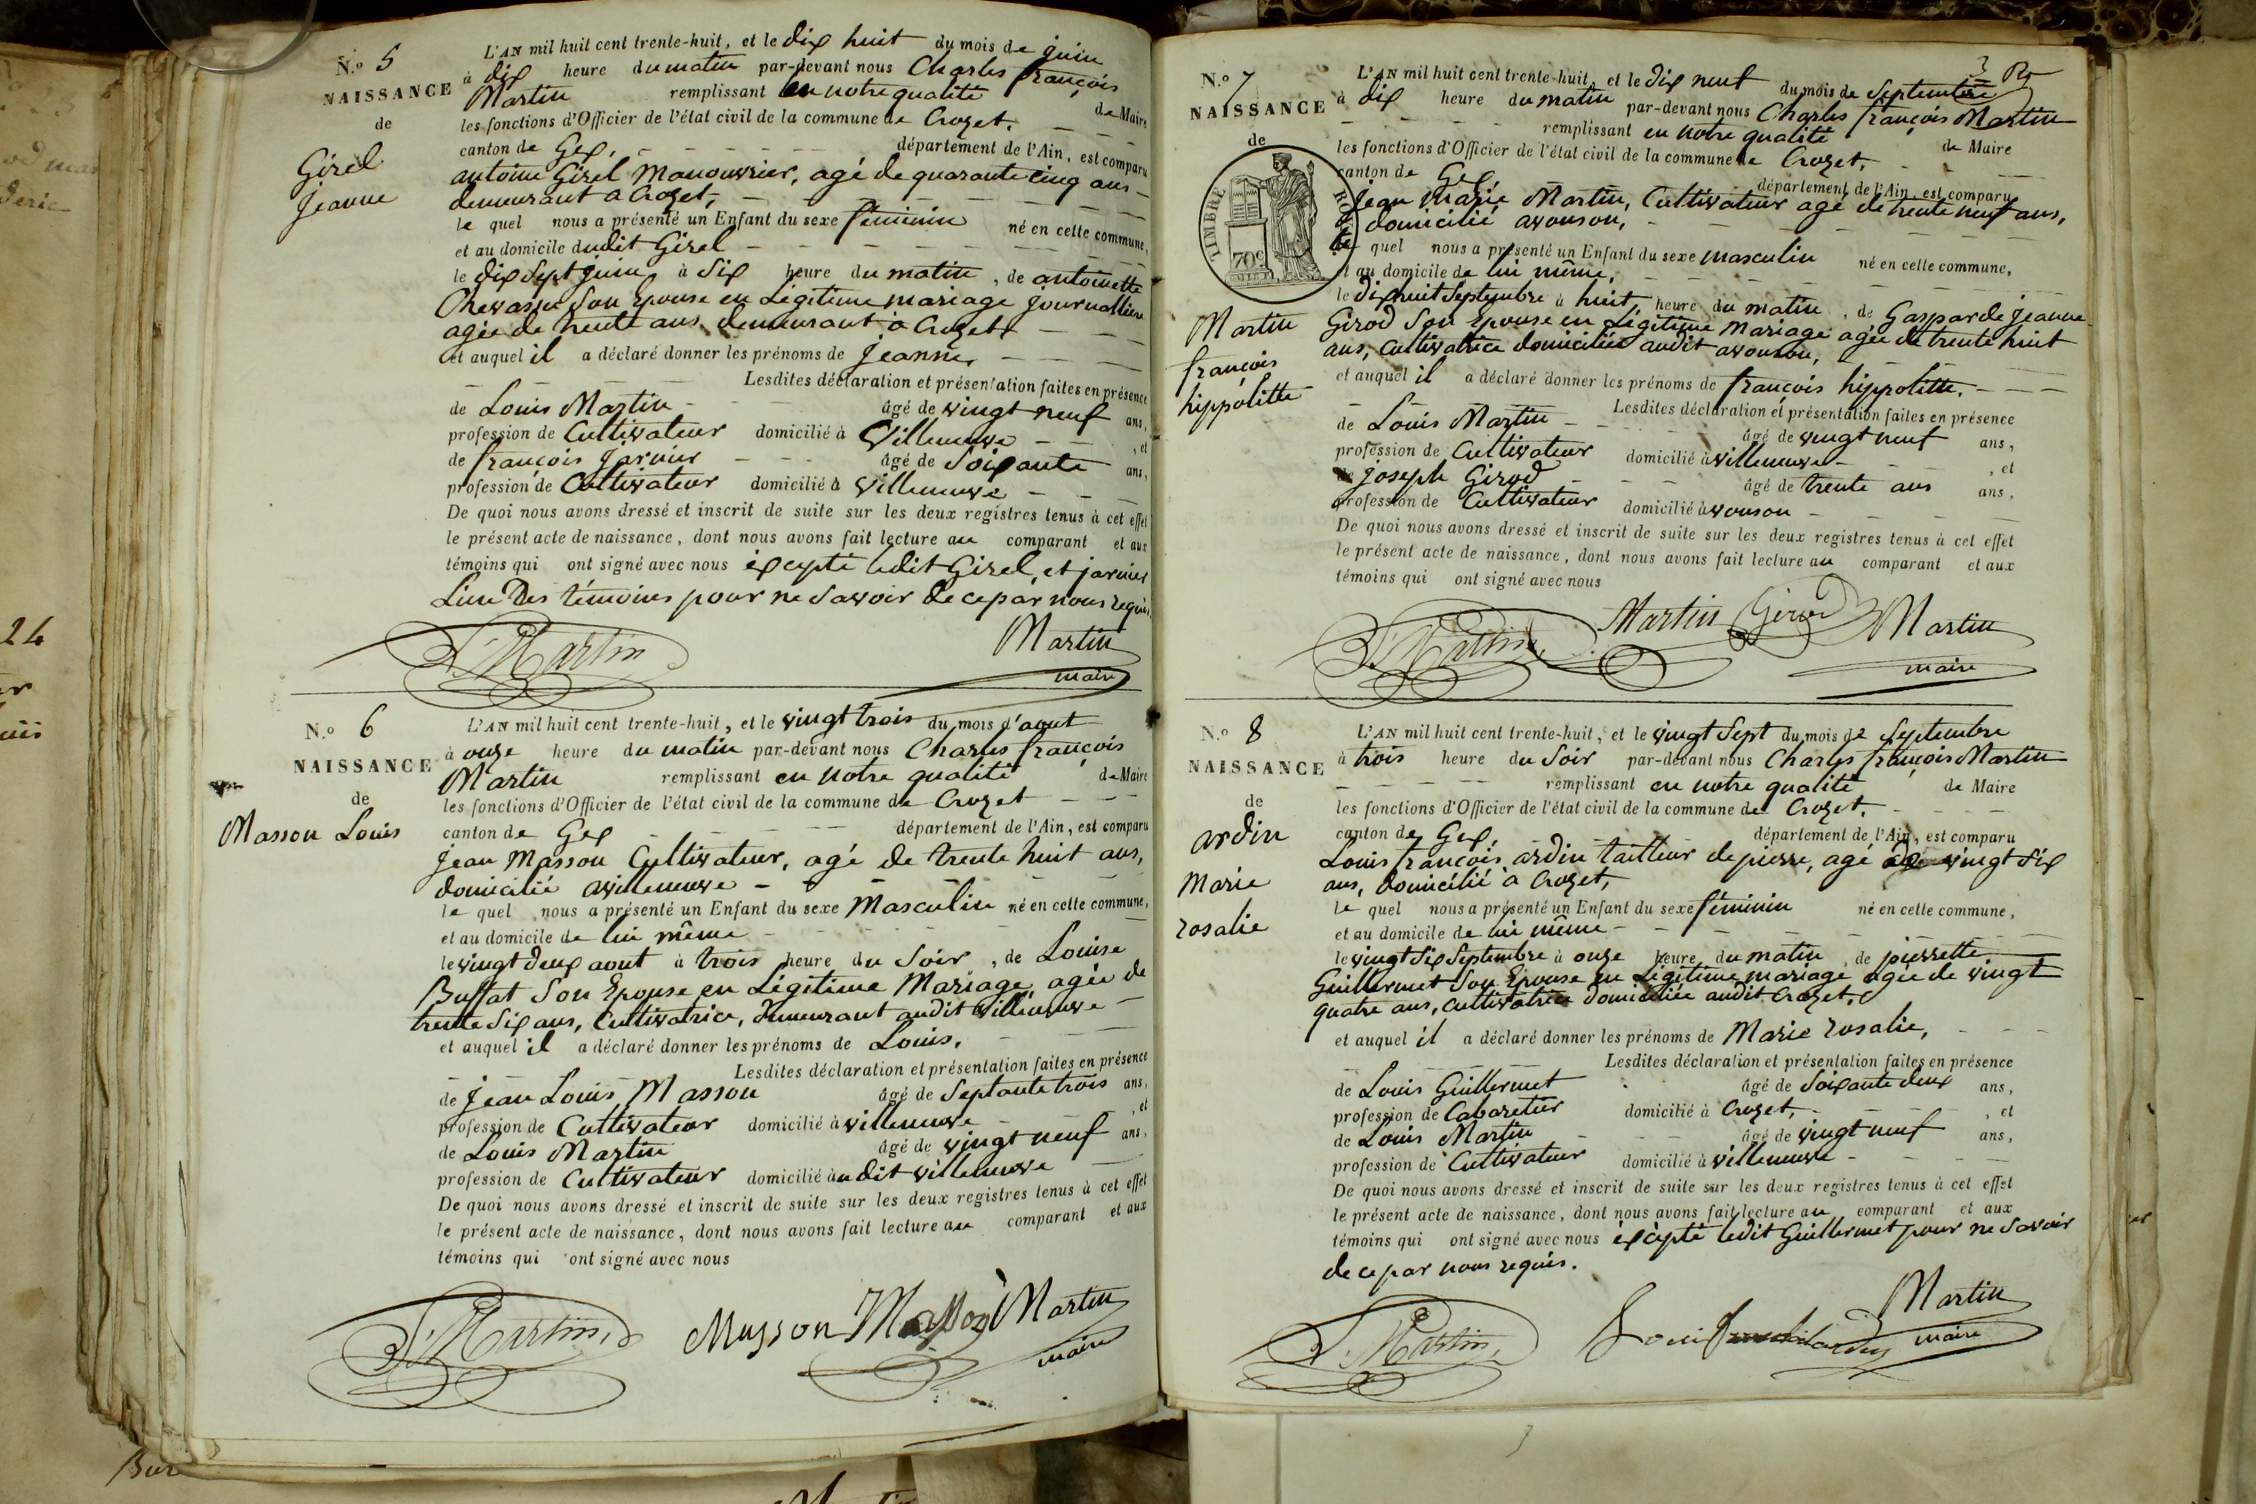 N.o 5
NAISSANCE
de
Girel
Jeanne
L'AN mil huit cent trente-huit, et le dix huit du mois de juin
à dix heure du matin par-devant nous Charles françois
Martin remplissant en notre qualité de Maire
les fonctions d'Officier de l'état civil de la commune de Crozet.
canton de Gex, département de l'Ain, est comparu
antoine Girel Manouvrier, agé de quarante cinq ans
demeurant a Crozet,
le quel nous a présenté un Enfant du sexe féminin né en cette commune,
et au domicile dudit Girel
le dix sept juin à Six heure du matin, de antoinette
Chevassu Son Epouse en Légitime mariage journallière
agée de trente ans demeurant à Crozet
et auquel il a déclaré donner les prénoms de Jeanne,
Lesdites déclaration et présentation faites en présence
de Louis Martin âgé de vingt neuf ans,
profession de Cultivateur domicilié à Villeneuve , et
de françois Jarnier âgé de Soixante ans,
profession de Cultivateur domicilié à Villeneuve
De quoi nous avons dressé et inscrit de suite sur les deux registres tenus à cet effet
le présent acte de naissance, dont nous avons fait lecture au comparant et aux
témoins qui ont signé avec nous excepté ledit Girel, et jarnier
L'un Des témoins pour ne Savoir de ce par nous requis
L. Martin Martin
maire
N.o 6
NAISSANCE
de
Masson Louis
L'AN mil huit cent trente-huit, et le vingt trois du mois d'aout
à onze heure du matin par-devant nous Charles françois
Martin remplissant en notre qualité de Maire
les fonctions d'Officier de l'état civil de la commune de Crozet
canton de Gex département de l'Ain, est comparu
Jean Masson Cultivateur, agé de trente huit ans,
domicilié a villeneuve
le quel nous a présenté un Enfant du sexe Masculin né en cette commune,
et au domicile de lui même
le vingt deux aout à trois heure du Soir, de Louise
Buffat Son Epouse en Légitime Mariage agée de
trente Six ans, Cultivatrice, demeurant audit Villeneuve
et auquel il a déclaré donner les prénoms de Louis.
Lesdites déclaration et présentation faites en présence
de Jean Louis Masson âgé de Septante trois ans,
profession de Cultivateur domicilié à villeneuve , et
de Louis Martin âgé de vingt neuf ans,
profession de Cultivateur domicilié audit villeneuve
De quoi nous avons dressé et inscrit de suite sur les deux registres tenus à cet effet
le présent acte de naissance, dont nous avons fait lecture au comparant et aux
témoins qui ont signé avec nous
L. Martin Masson Masson Martin
maire
3
N.o 7
NAISSANCE
de
TIMBRE ROYAL
70c
Martin
françois
hippolitte
L'AN mil huit cent trente-huit, et le dix neuf du mois de Septembre
à dix heure du matin par-devant nous Charles françois Martin
remplissant en notre qualité de Maire
les fonctions d'Officier de l'état civil de la commune de Crozet,
canton de Gex, département de l'Ain, est comparu
Jean Marie Martin, Cultivateur agé de trente neuf ans,
domicilié avouson,
le quel nous a présenté un Enfant du sexe masculin né en cette commune,
et au domicile de lui même,
le dix huit Septembre à huit, heure du matin, de Gasparde Jeanne
Girod Son Epouse en Légitime Mariage agée de trente huit
ans, Cultivatrice domiciliée audit avouson,
et auquel il a déclaré donner les prénoms de françois hippolitte.
Lesdites déclaration et présentation faites en présence
de Louis Martin âgé de vingt neuf ans,
profession de Cultivateur domicilié à villeneuve , et
de joseph Girod âgé de trente ans ans,
profession de Cultivateur domicilié à vouson
De quoi nous avons dressé et inscrit de suite sur les deux registres tenus à cet effet
le présent acte de naissance, dont nous avons fait lecture au comparant et aux
témoins qui ont signé avec nous
L. Martin Martin Girod Martin
maire
N.o 8
NAISSANCE
de
ardin
Marie
rosalie
L'AN mil huit cent trente-huit, et le vingt Sept du mois de Septembre
à trois heure du Soir par-devant nous Charles françois Martin
remplissant en notre qualité de Maire
les fonctions d'Officier de l'état civil de la commune de Crozet.
canton de Gex, département de l'Ain, est comparu
Louis françois ardin tailleur de pierre, agé de vingt Six
ans, domicilié a Crozet,
le quel nous a présenté un Enfant du sexe féminin né en cette commune,
et au domicile de lui même
le vingt Six Septembre à onze heure du matin, de pierrette
Guillermet Son Epouse en Légitime mariage agée de vingt
quatre ans, Cultivatrice domiciliée audit Crozet,
et auquel il a déclaré donner les prénoms de Marie rosalie,
Lesdites déclaration et présentation faites en présence
de Louis Guillermet âgé de Soixante deux ans,
profession de Cabaretier domicilié à Crozet, , et
de Louis Martin âgé de vingt neuf ans,
profession de Cultivateur domicilié à villeneuve
De quoi nous avons dressé et inscrit de suite sur les deux registres tenus à cet effet
le présent acte de naissance, dont nous avons fait lecture au comparant et aux
témoins qui ont signé avec nous excepté ledit Guillermet pour ne Savoir
de ce par nous requis.
L. Martin Martin
maire